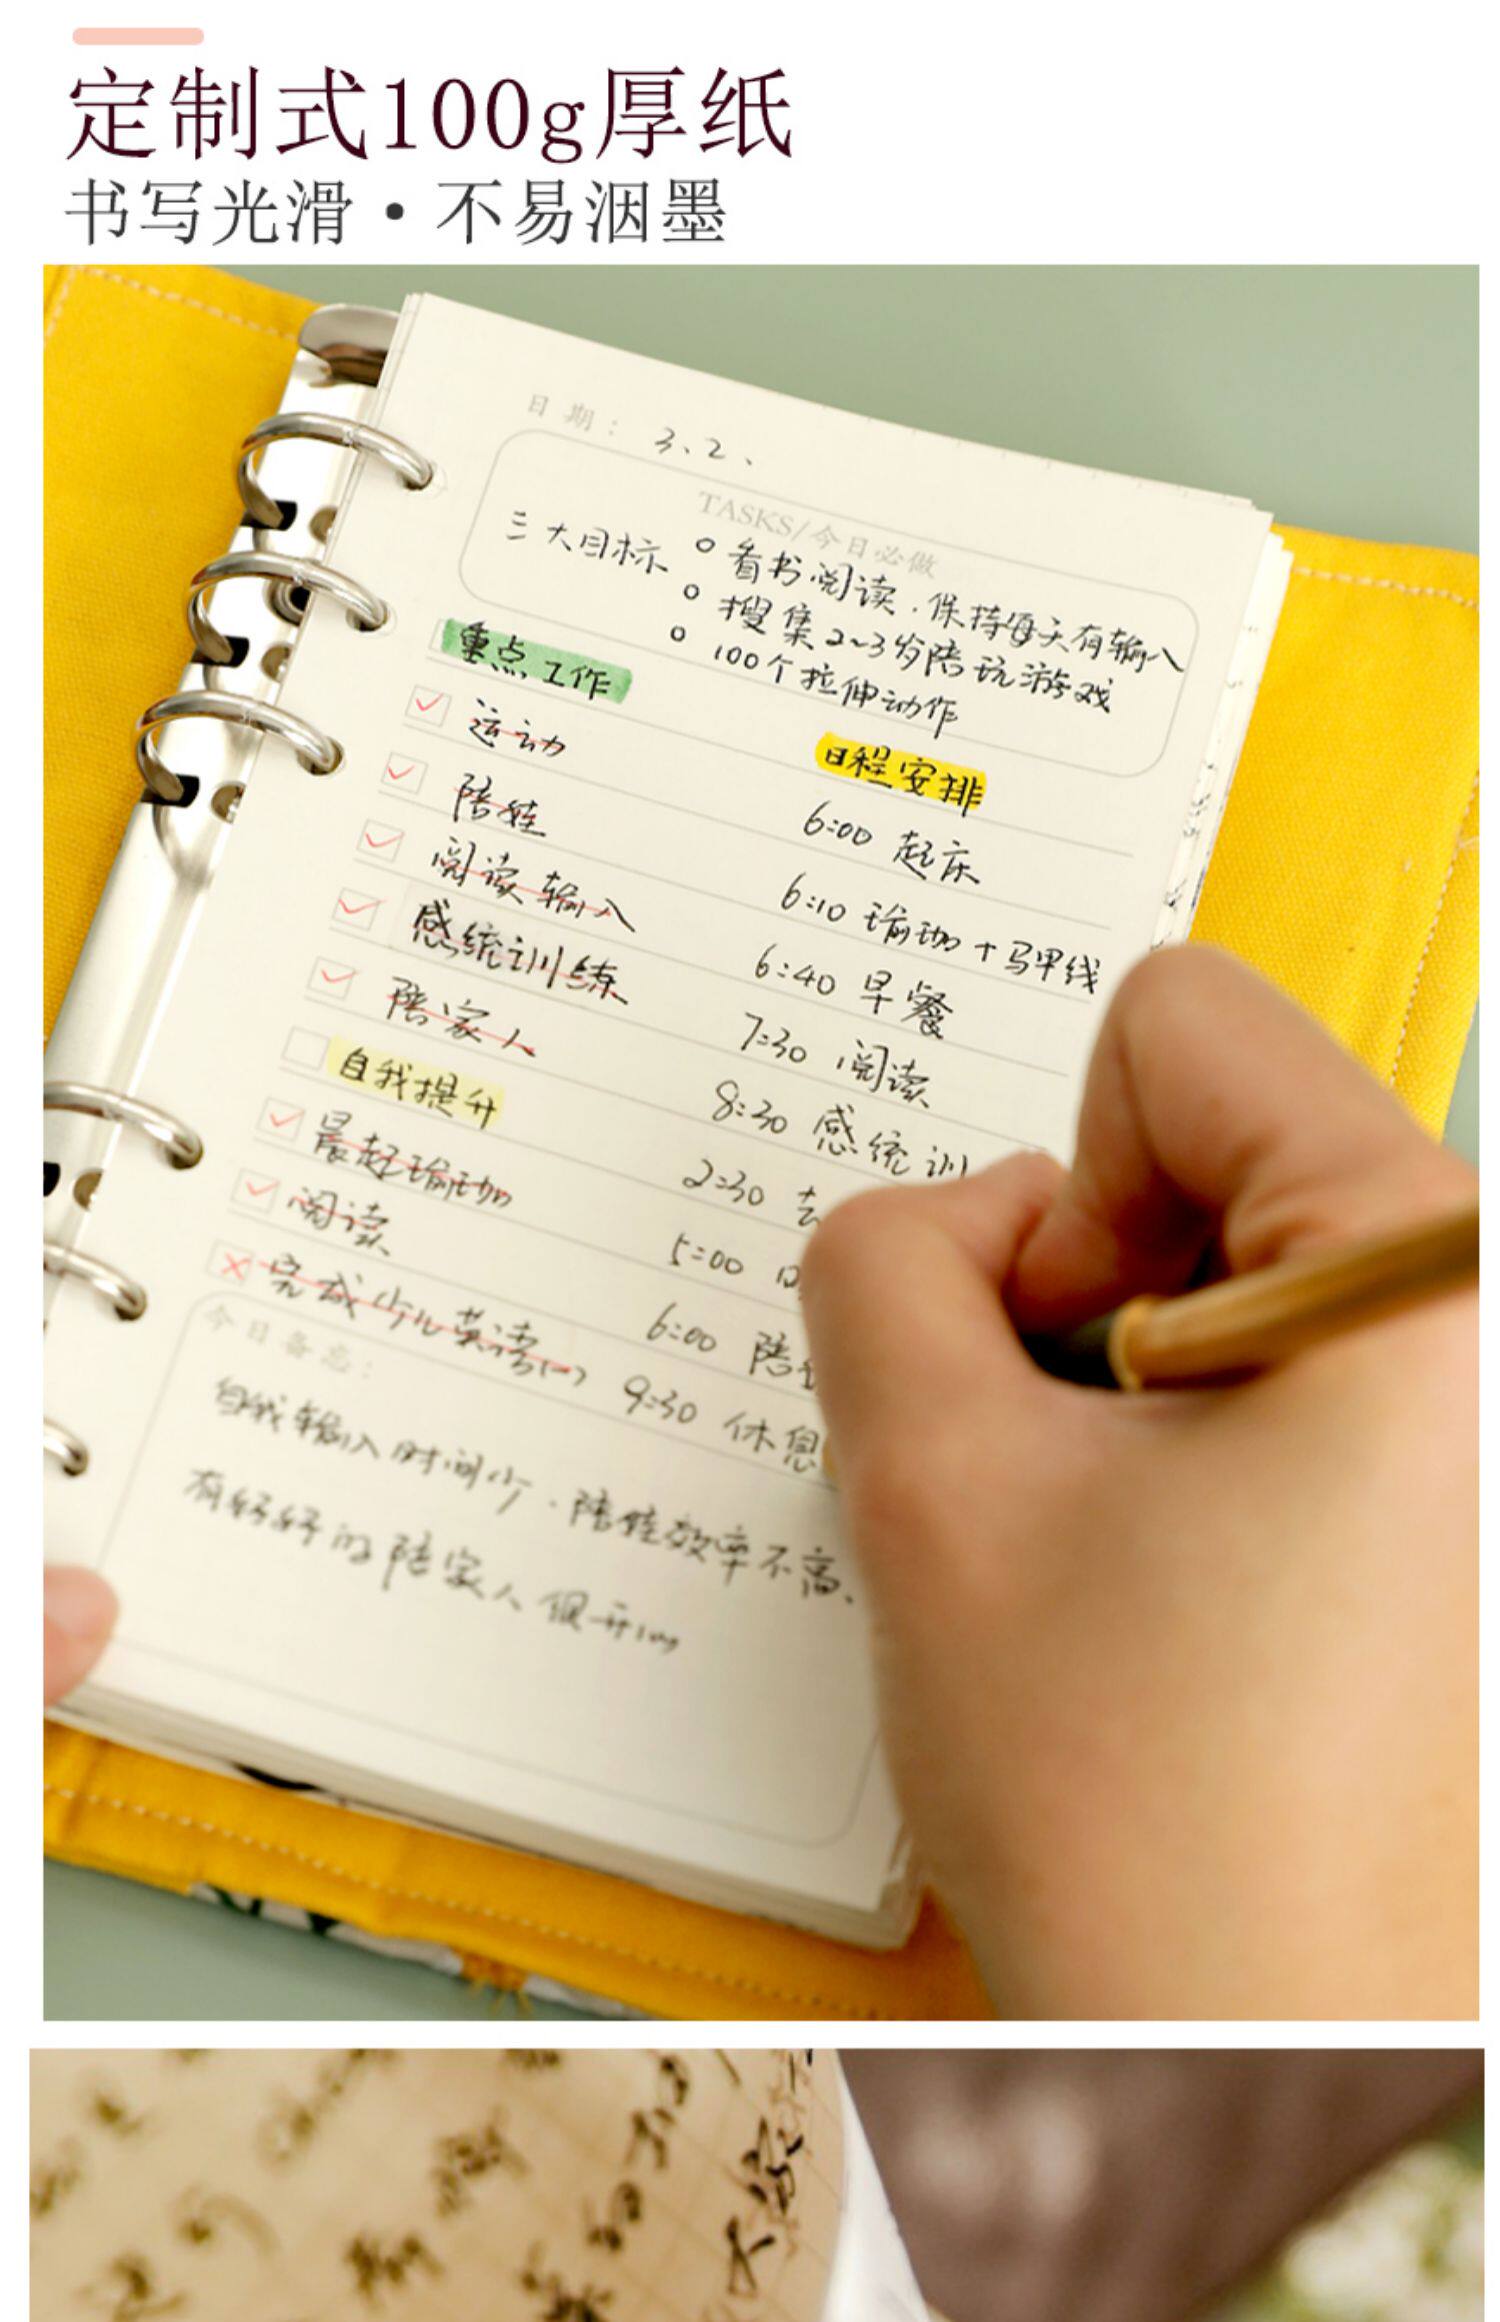 定制式100g厚纸
书写光滑·不易洇墨
日期： 3、2、
TASKS/今日必做
三大目标 o 看书阅读.保持每天有输入
o 搜集2~3岁陪玩游戏
o 100个拉伸动作
重点工作
日程安排
运动
6:00 起床
陪娃
6:10 瑜珈+马甲线
阅读输入
6:40 早餐
感统训练
7:30 阅读
陪家人
8:30 感统训
自我提升
2:30 去
晨起瑜珈
5:00
阅读
6:00 陪
完成少儿英语(一)
9:30 休息
今日备忘：
自我输入时间少.陪娃效率不高、
有好好的陪家人很开心